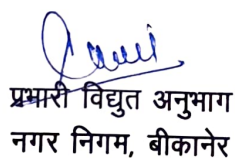 प्रभारी विद्युत अनुभाग
नगर निगम, बीकानेर